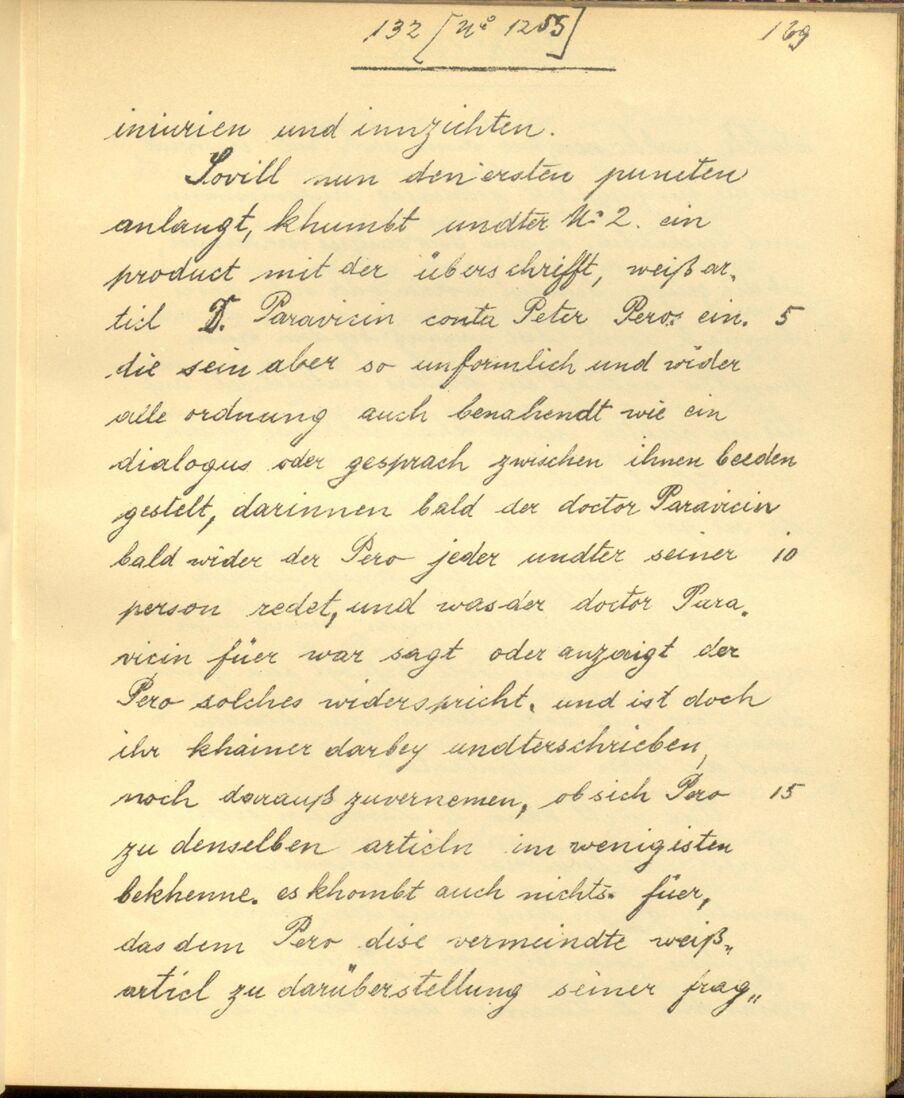 132 [N° 1255]
169
iniurien und innzichten.
Sovill nun den ersten puncten
anlangt, khumbt undter N° 2. ein
product mit der überschrifft, weiß ar„
ticl D. Paravicin conta Peter Pero: ein. 5
die sein aber so unformlich und wider
alle ordnung auch benahendt wie ein
dialogus oder gesprach zwischen ihnen beeden
gestelt, darinnen bald der doctor Paravicin
bald wider der Pero jeder undter seiner 10
person redet, und was der doctor Para„
vicin füer war sagt oder anzaigt der
Pero solches widerspricht. und ist doch
ihr khainer darbey undterschrieben,
noch darauß zuvernemen, ob sich Pero 15
zu denselben articln im wenigisten
bekhenne. es khombt auch nichts füer,
das dem Pero dise vermeindte weiß„
articl zu darüberstellung seiner frag„